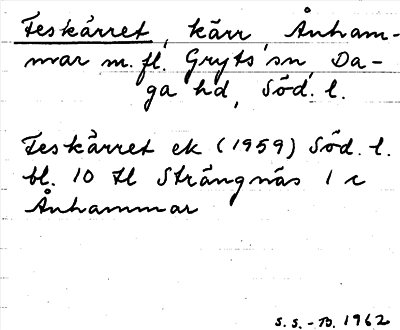 Feskärret, kärr Ånham-
mar m.fl. Gryts sn, Da-
ga hd, Söd. l.
Feskärret ek (1959) Söd. l.
bl. 10 tl Strängnäs 1 c
Ånhammar
S.S.-B. 1962